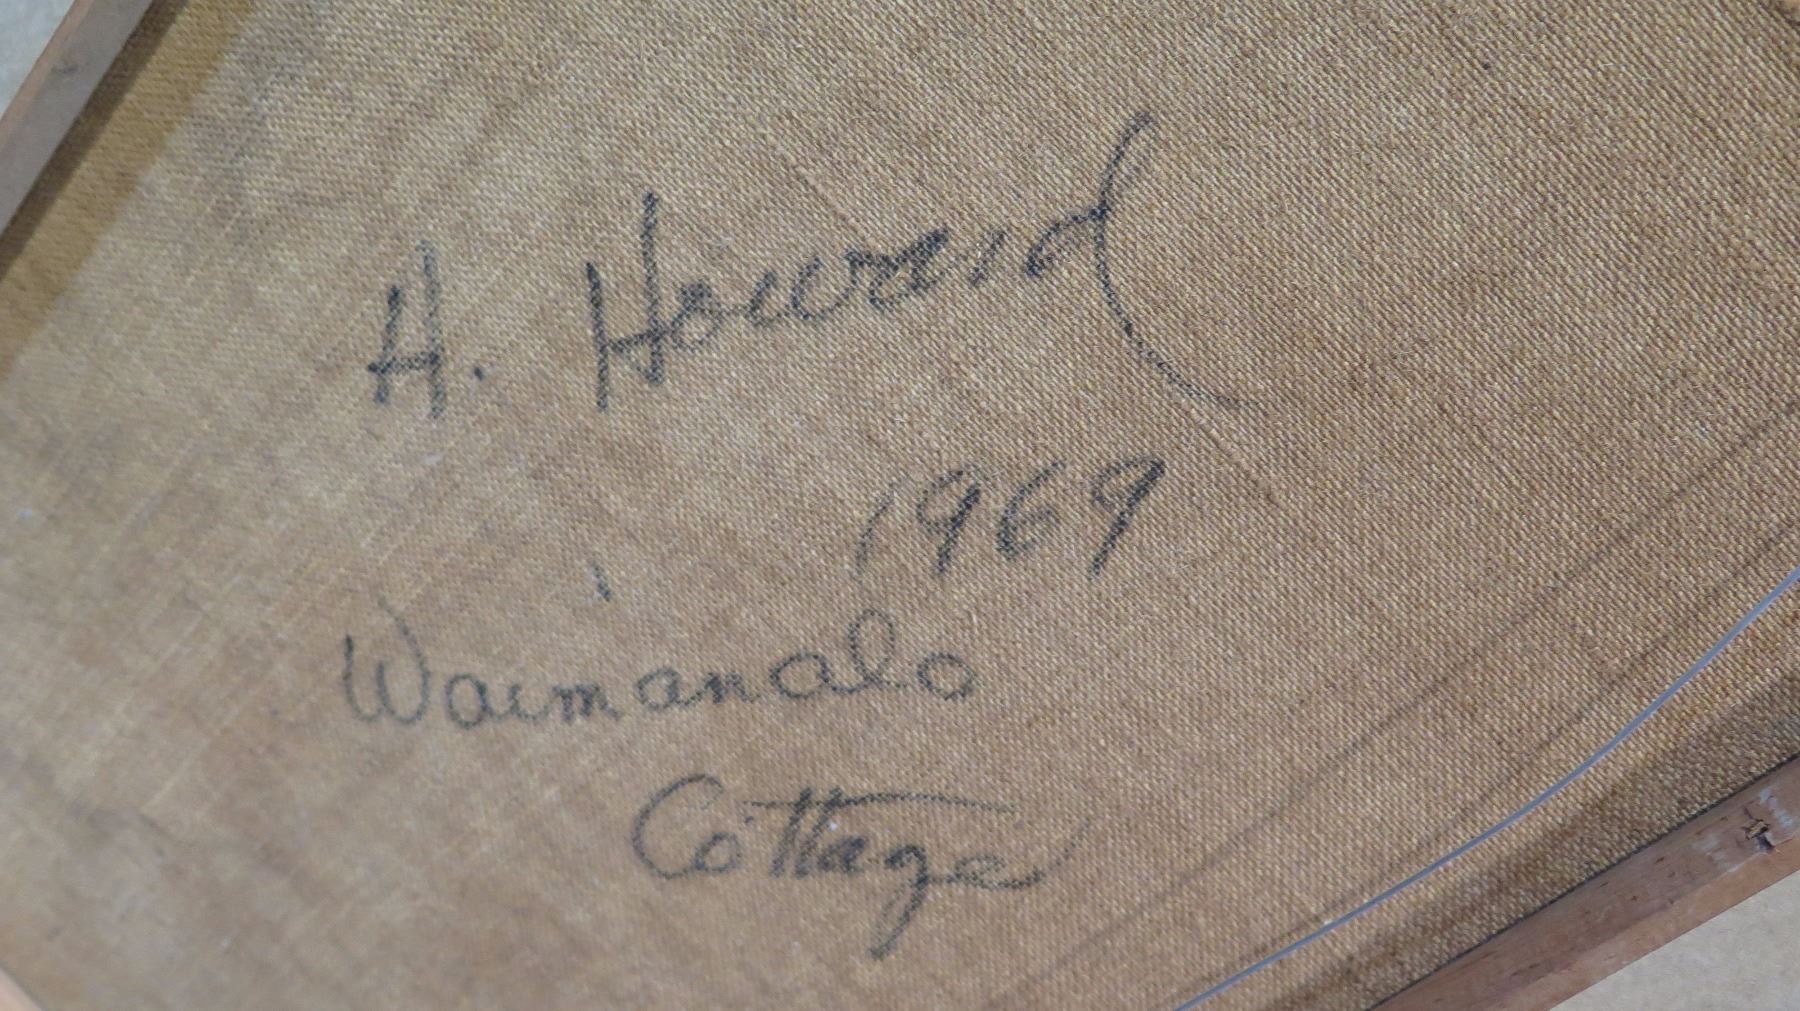 H. Howard
1969
Waimanalo
Cottage